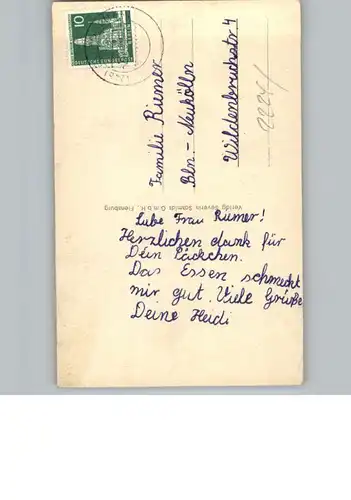 Familie Rümer
Bln.-Neukölln
Wildenbruchstr 4
Verlag Severin Schmidt G.m.b.H., Flensburg
Liebe Frau Rümer!
Herzlichen dank für
Dein Päckchen.
Das Essen schmeckt
mir gut. Viele Grüße
Deine Heidi
10